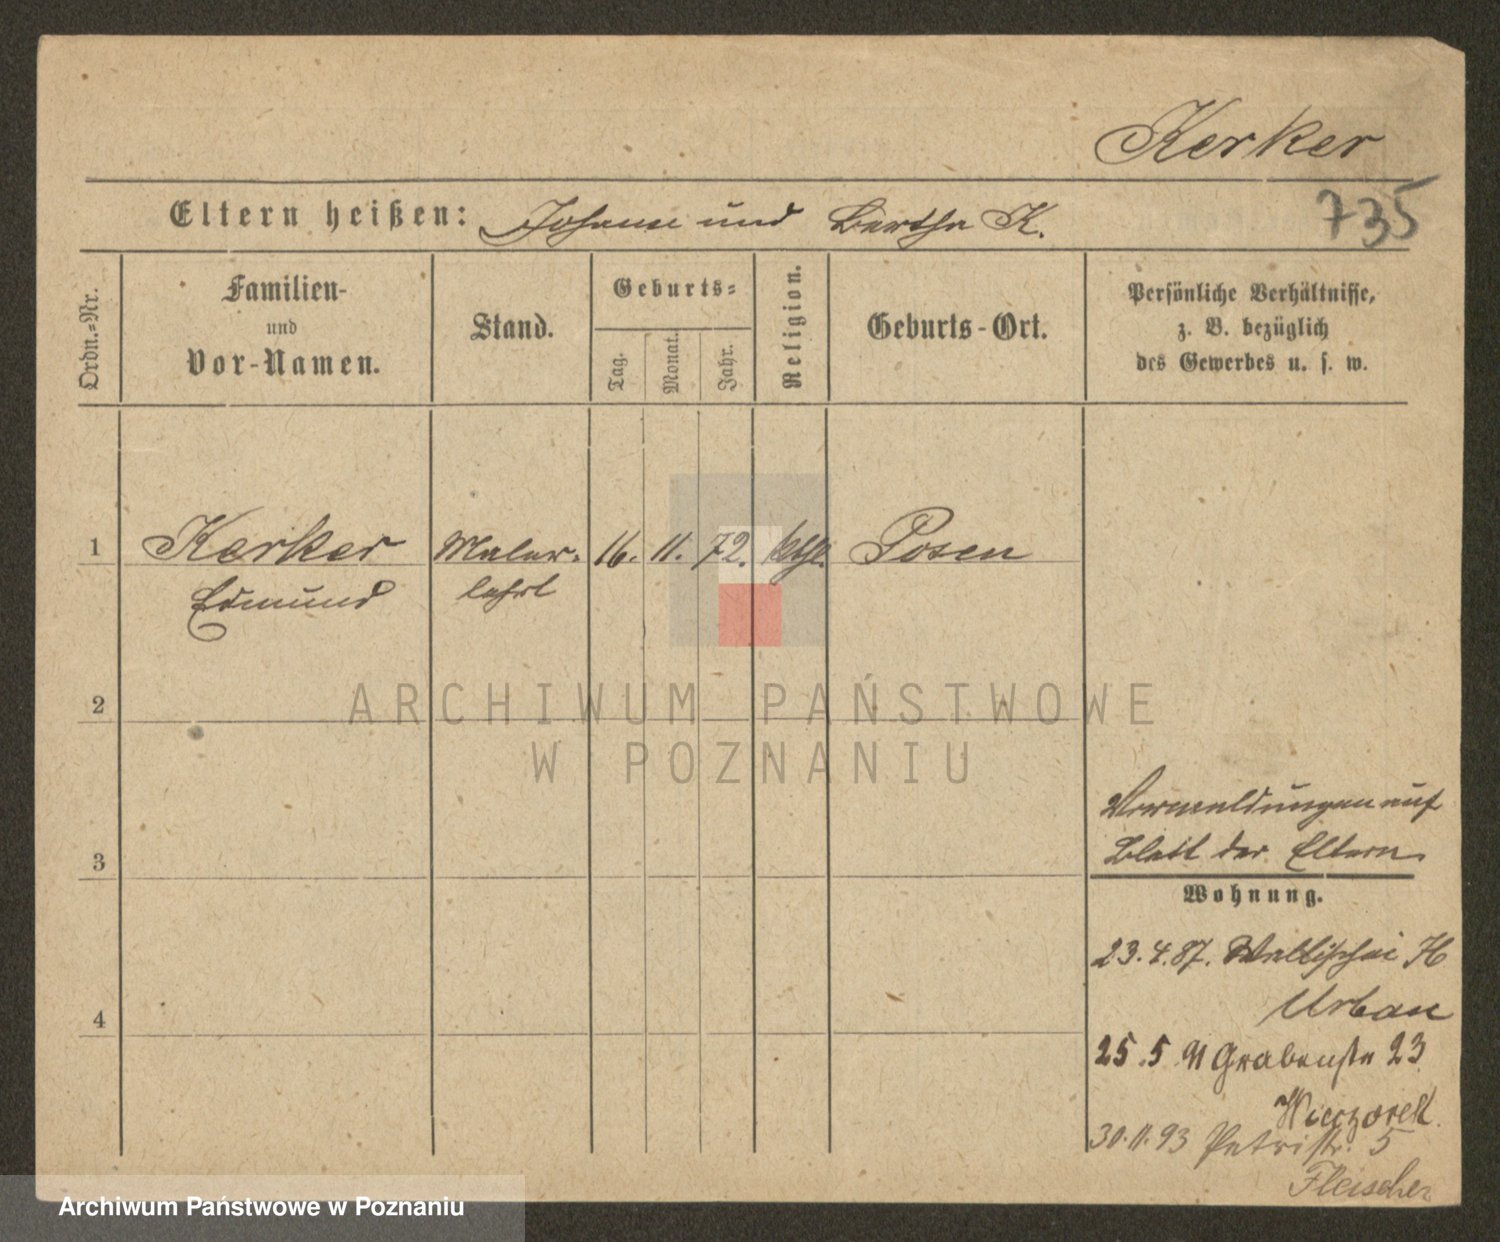 Kerker
735
Eltern heißen: Johann und Bertha K.
Ordn.=Nr.
Familien-
und
Vor-Namen.
Stand.
Geburts=
Tag.
Monat.
Jahr.
Religion.
Geburts-Ort.
Persönliche Verhältnisse,
z. B. bezüglich
des Gewerbes u. s. w.
1 Kerker Maler- 16. 11. 72. kth. Posen
Edmund lehrl
2
ARCHIWUM PAŃSTWOWE
W POZNANIU
3
Vormeldungen auf
Blatt der Eltern
Wohnung.
4
23.4.87. Wallischei
Urban
25.5.91 Grabenstr 23
Wieczorek.
30.11.93 Petristr. 5
Fleischer
Archiwum Państwowe w Poznaniu